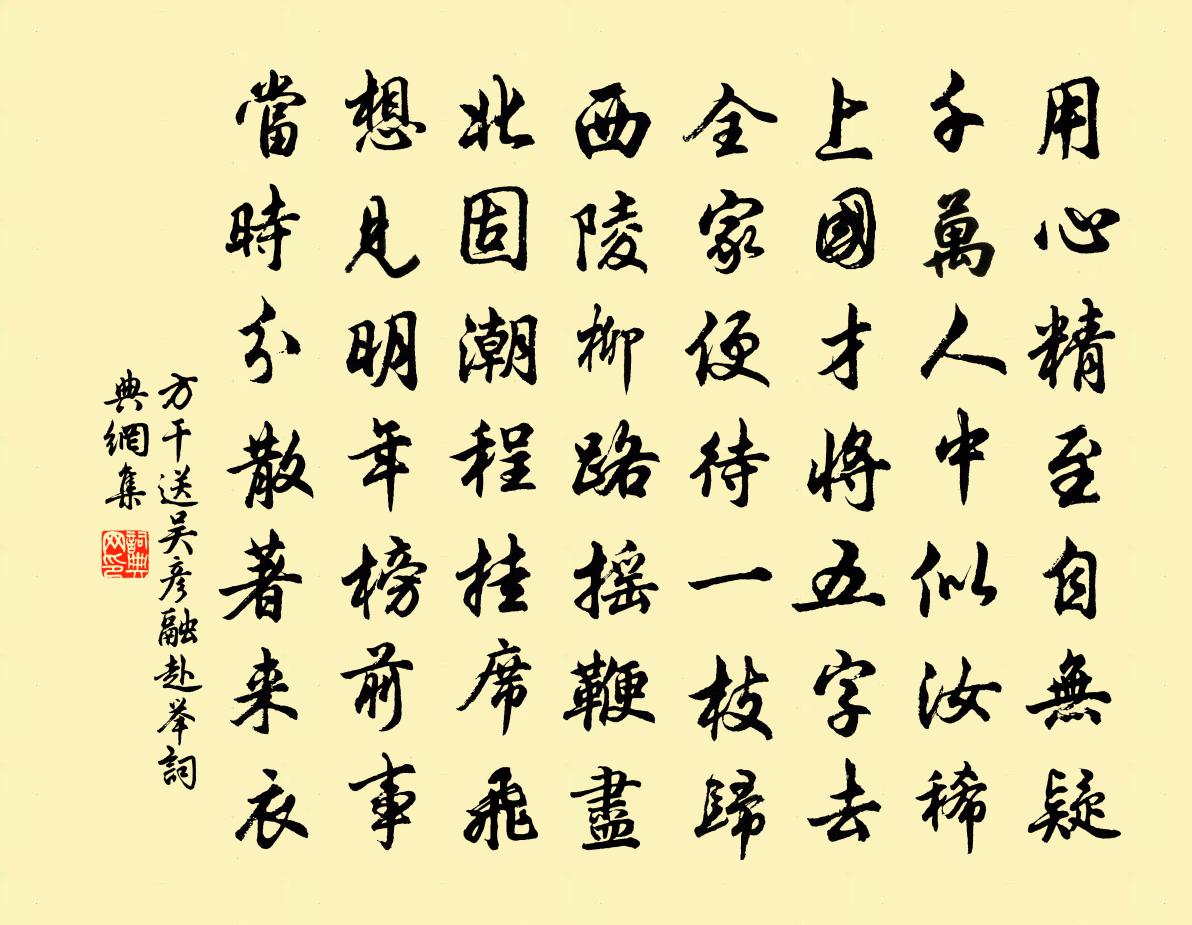 用心精至自無疑
千萬人中似汝稀
上國才將五字去
全家便待一枝歸
西陵柳路摇鞭盡
北固潮程挂席飛
想見明年榜前事
當時分散著来衣
方干送吴彦融赴举詞
典網集
詞典
网印